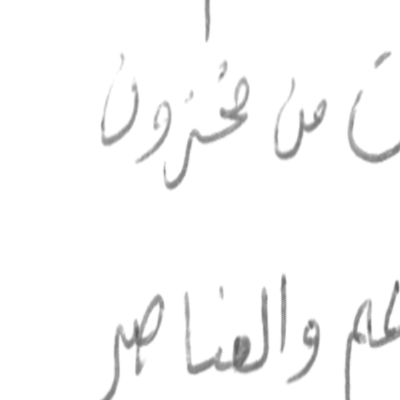 من مخزون
والعناصر